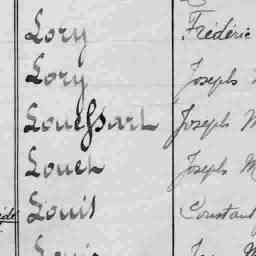 Lory Frédéric
Lory Joseph
Louessart Joseph M
Louet Joseph M
Louis Constant